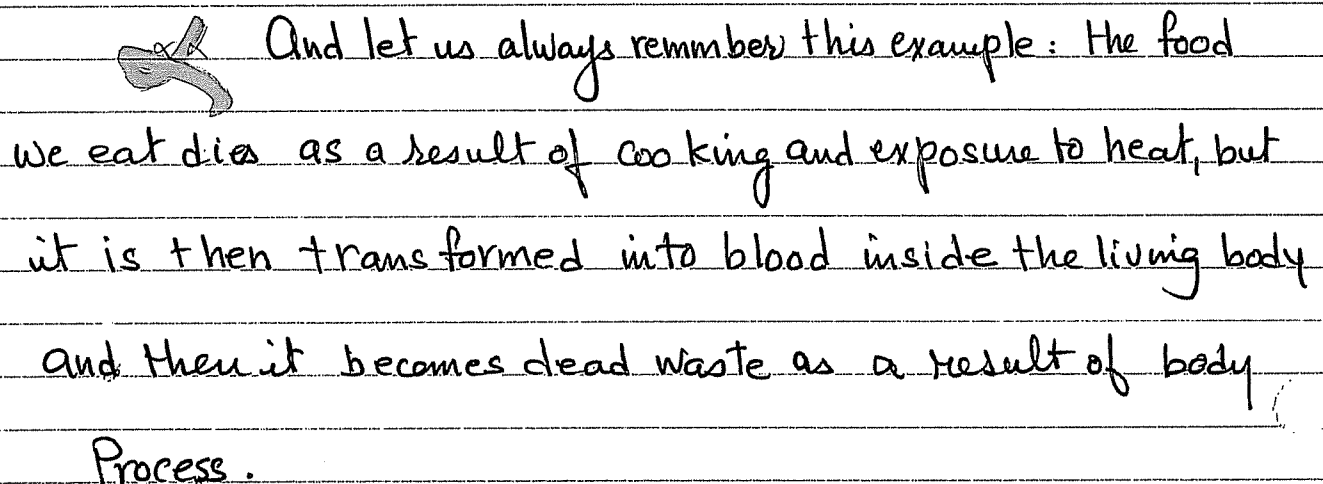 And let us always remmber this example: the food
we eat dies as a result of cooking and exposure to heat, but
it is then transformed into blood inside the living body
and then it becomes dead waste as a result of body
Process.